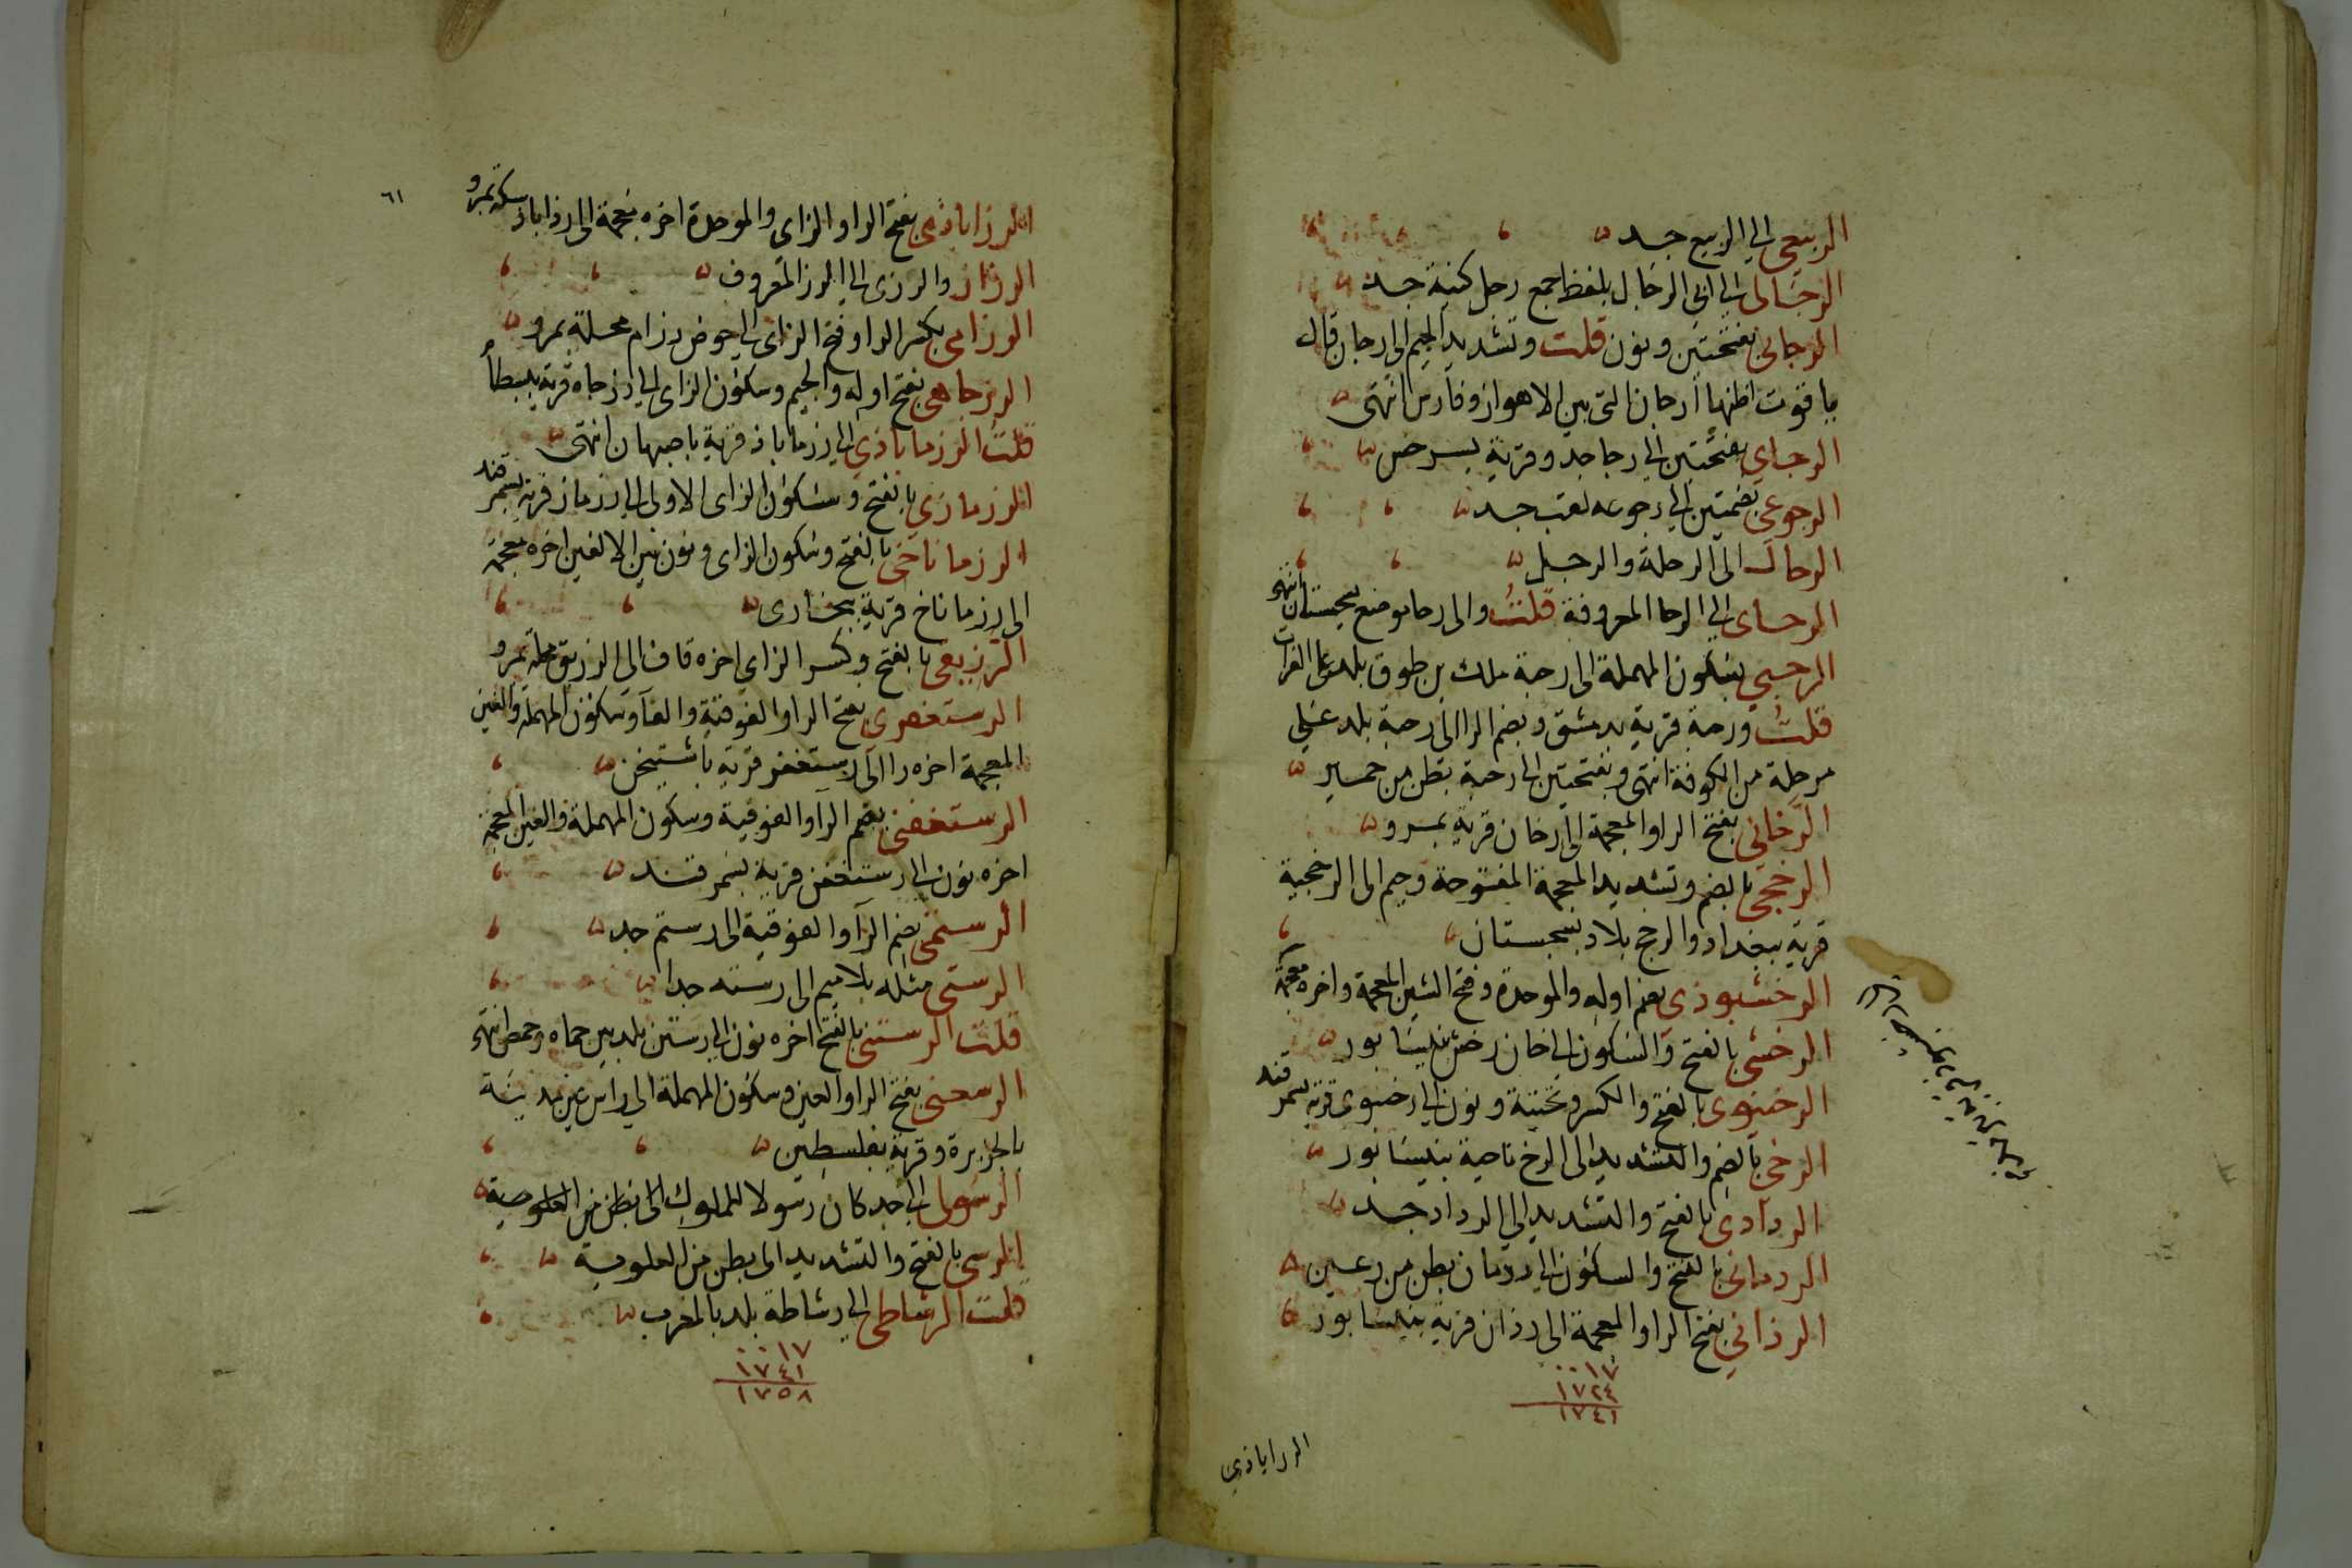 الربيعي الى الربيع جد
الرجالي الى ابي الرجال بلفظ جمع رجل كنية جد
الرجاني بفتحتين ونون قلت وتشديد الجيم الى رجان قال
ياقوت اظنها ارجان التي بين الاهواز وفارس انتهى
الرجاي بفتحتين الى رجا جد وقرية بسرخس
الرجوعي بضمتين الى رجوعه لقب جد
الرحال الى الرحلة والرحيل
الرحاى الى الرحا المعروفة قلت والى رحا موضع بسجستان انتهى
الرحبي بسكون المهملة الى رحبة ملك بن طوق بلد على الفرات
قلت ورحبة قرية بدمشق وبضم الرا الى رحبة بلد على
مرحلة من الكوفة انتهى وبفتحتين الى رحبة بطن من حمير
الرخاني بفتح الرا والمعجمة الى رخان قرية بمرو
الرخجي بالضم وتشديد المعجمة المفتوحة وجيم الى الرخجية
قرية ببغداد والرخج بلاد بسجستان
الرخشبوذي بضم اوله والموحدة وفتح الشين المعجمة واخره معجمة
الرخشي بالفتح والسكون الى خان رخش بنيسابور
الرخينوى بالفتح والكسر وتحتية ونون الى رخينوى قرية بسمرقند
الرخي بالضم والتشديد الى الرخ ناحية بنيسابور
الردادى بالفتح والتشديد الى الرداد جد
الردمانى بالفتح والسكون الى ردمان بطن من رعين
الرذاني بفتح الرا والمعجمة الى رذان قرية بنيسابور
٠٠١٧
١٧٢٤
١٧٤١
الرزاباذي
٦١
الرزاباذي بفتح الرا والزاى والموحدة اخره معجمة الى رزاباذ سكة بمرو
الرزاز والرزى الى الرز المعروف
الرزامى بكسر الرا وفتح الزاى الى حوض رزام محلة بمرو
الرزجاهى بفتح اوله والجيم وسكون الزاى الى رزجاه قرية ببسطام
قلت الرزماباذي الى رزماباذ قرية باصبهان انتهى
الرزمازي بالفتح وسكون الزاى الاولى الى رزماز قرية بسمرقند
الرزماناخي بالفتح وسكون الزاى ونون بين الالفين اخره معجمة
الى رزماناخ قرية ببخارى
الرزيقي بالفتح وكسر الزاى اخره قاف الى الرزيق محلة بمرو
الرستغفرى بفتح الرا والفوقية والفا وسكون المهملة والغين
المعجمة اخره را الى رستغفر قرية باشتيخن
الرستغفني بضم الرا والفوقية وسكون المهملة والغين المعجمة
اخره نون الى رستغفن قرية بسمرقند
الرستمي بضم الرا والفوقية الى رستم جد
الرستي مثله بلا ميم الى رسته جد
قلت الرستني بالفتح اخره نون الى رستن بلد بين حماه وحمص انتهى
الرسعني بفتح الرا والعين وسكون المهملة الى راس عين مدينة
بالجزيرة وقرية بفلسطين
الرسولى الى جد كان رسولا للملوك الى بطن من العلوية
الرسي بالفتح والتشديد الى بطن من العلوية
قلت الرشاطى الى رشاطة بلد بالمغرب
٠٠١٧
١٧٤١
١٧٥٨